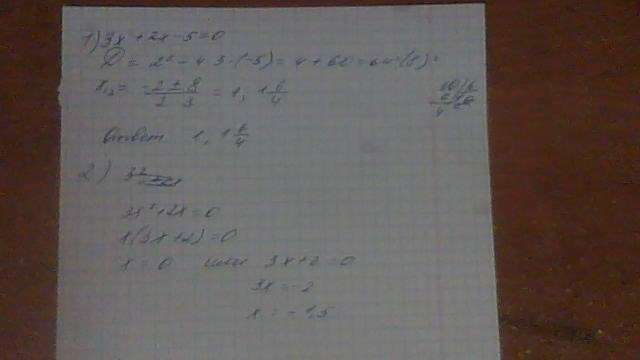 1) 3x + 2x - 5 = 0
D = 2² - 4 · 3 · (-5) = 4 + 60 = 64 (8)²
x₁,₂ = (-2 ± 8) / (2 · 3) = 1, 1 6/4
Ответ 1, 1 6/4
2)
3x² + 2x = 0
x(3x + 2) = 0
x = 0 или 3x + 2 = 0
3x = -2
x = -1,5